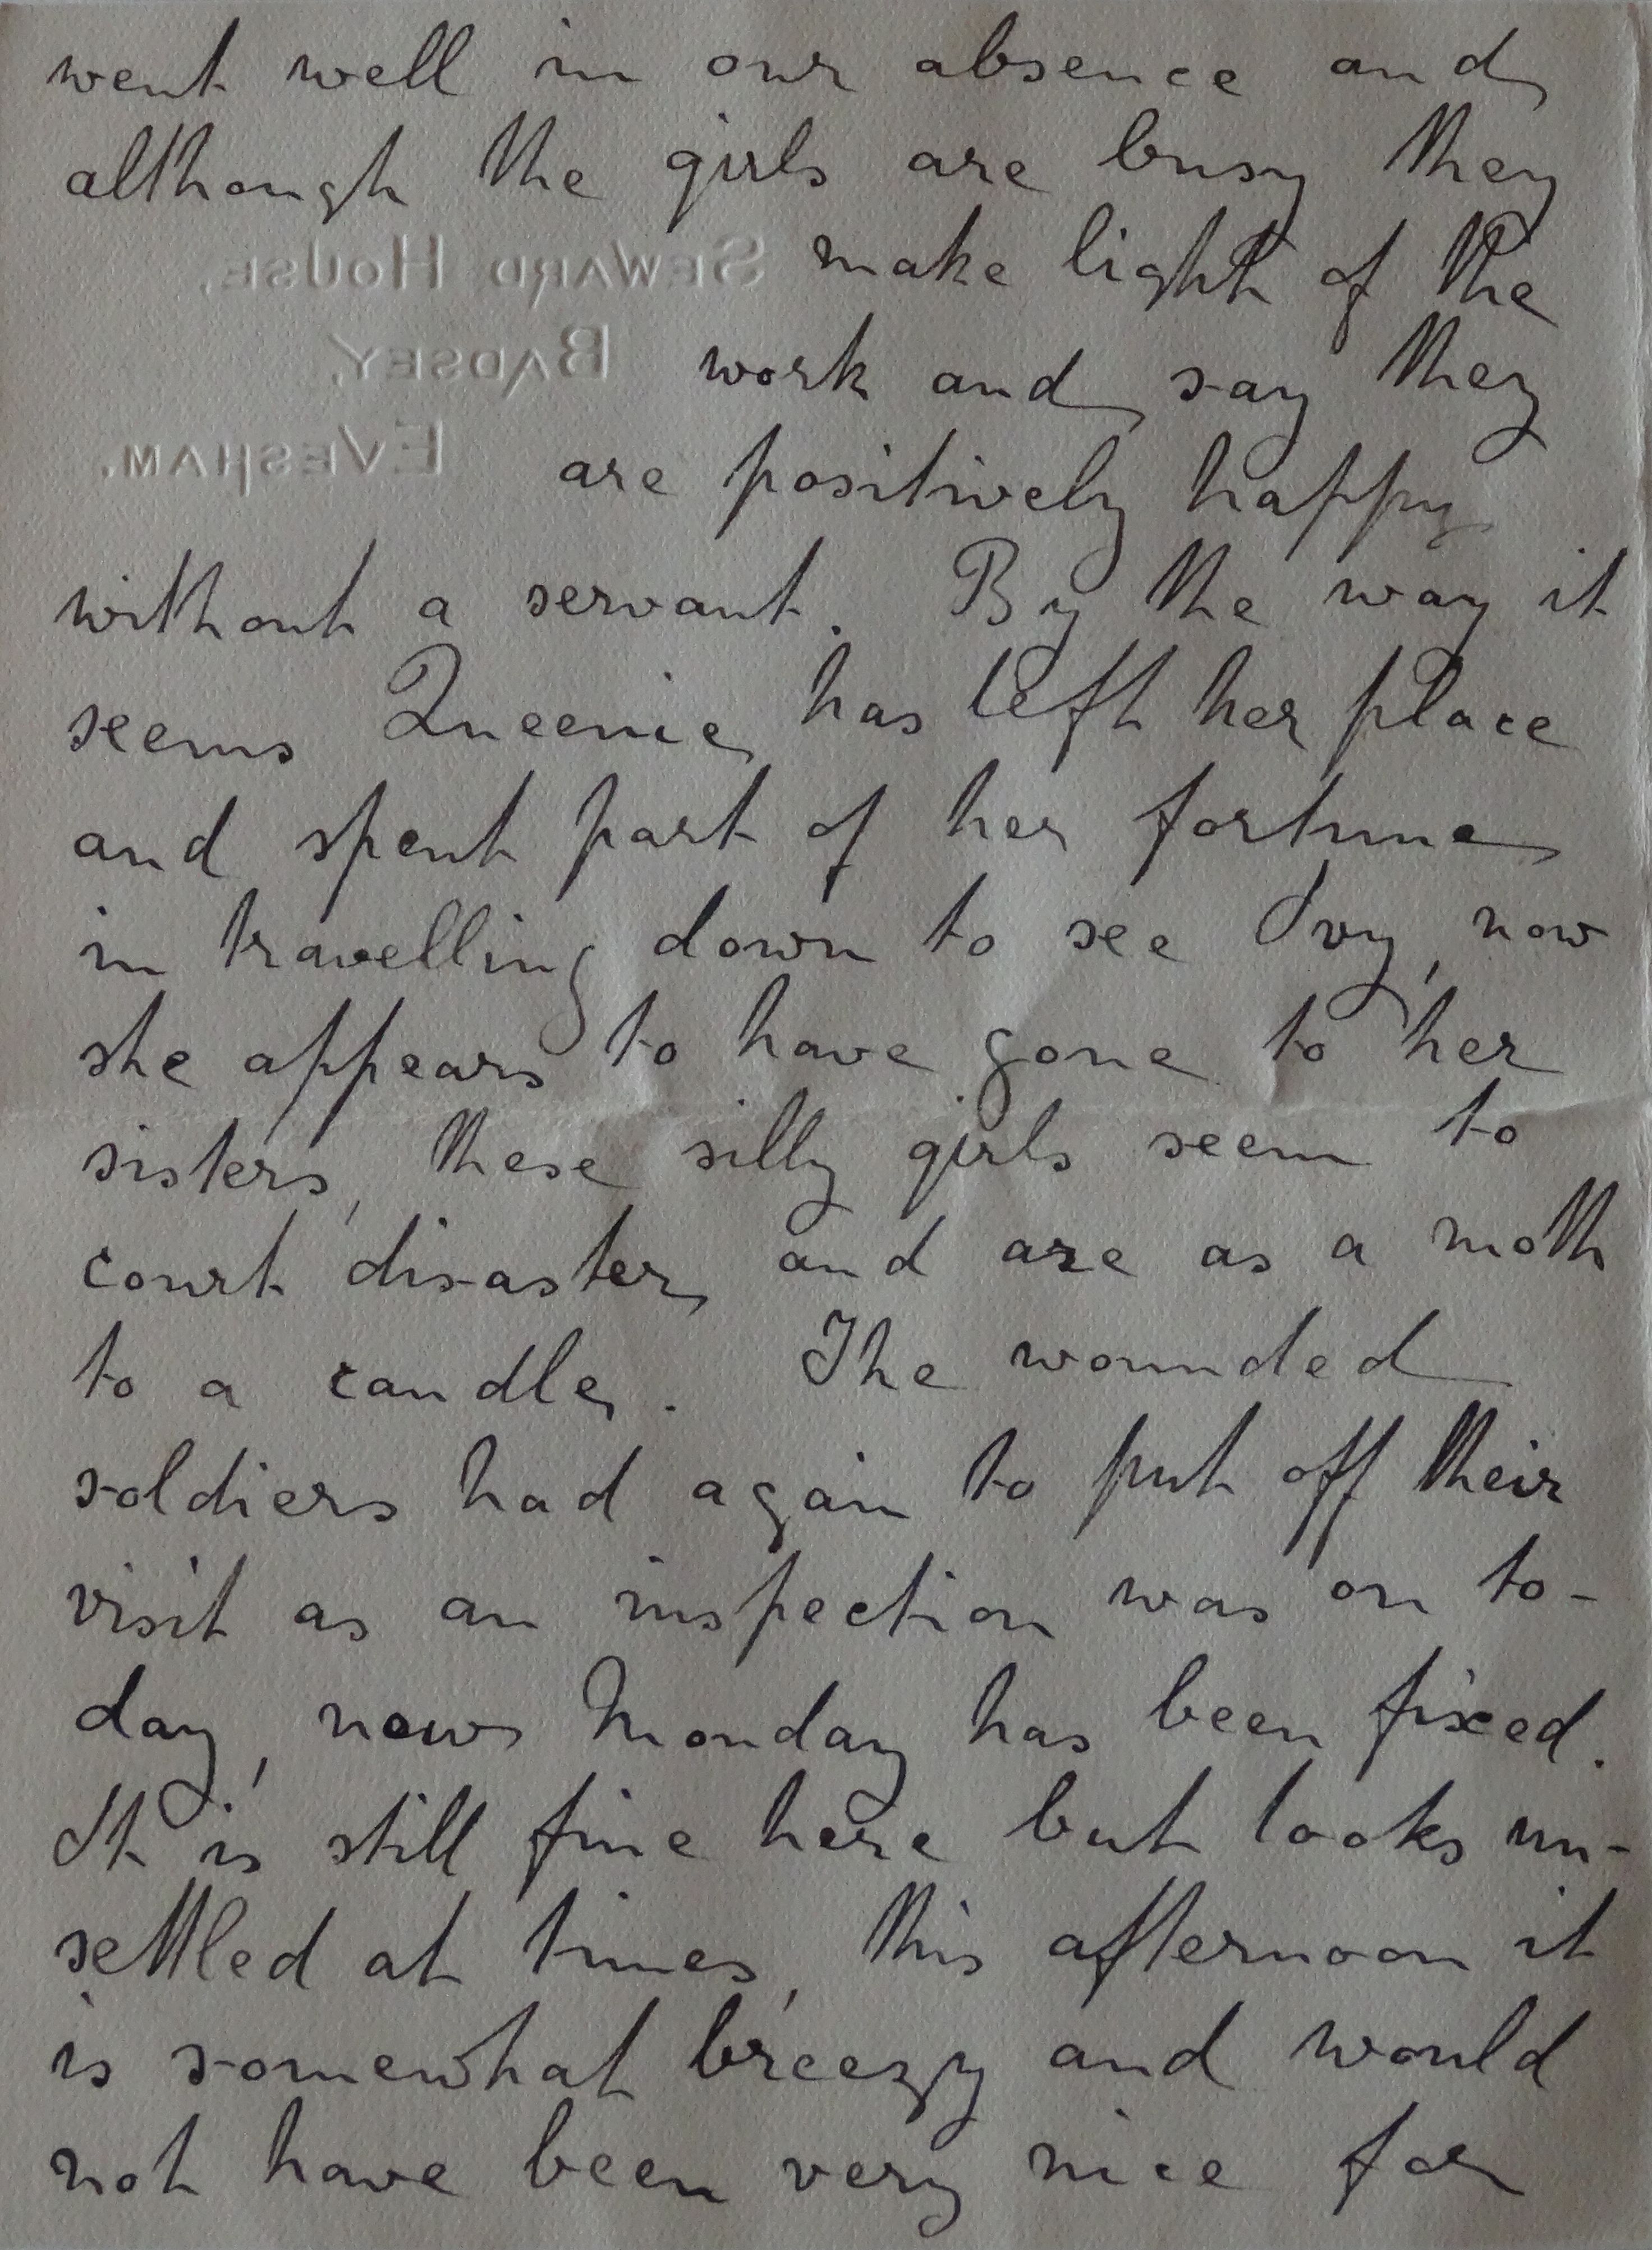 went well in our absence and
although the girls are busy they
SEWARD HOUSE, make light of the
BADSEY, work and say they
EVESHAM. are positively happy
without a servant. By the way it
seems Queenie has left her place
and spent part of her fortune
in travelling down to see Ivy, now
she appears to have gone to her
sisters, these silly girls seem to
court disaster and are as a moth
to a candle. The wounded
soldiers had again to put off their
visit as an inspection was on to-
day, now Monday has been fixed.
It is still fine here but looks un-
settled at times, this afternoon it
is somewhat breezy and would
not have been very nice for